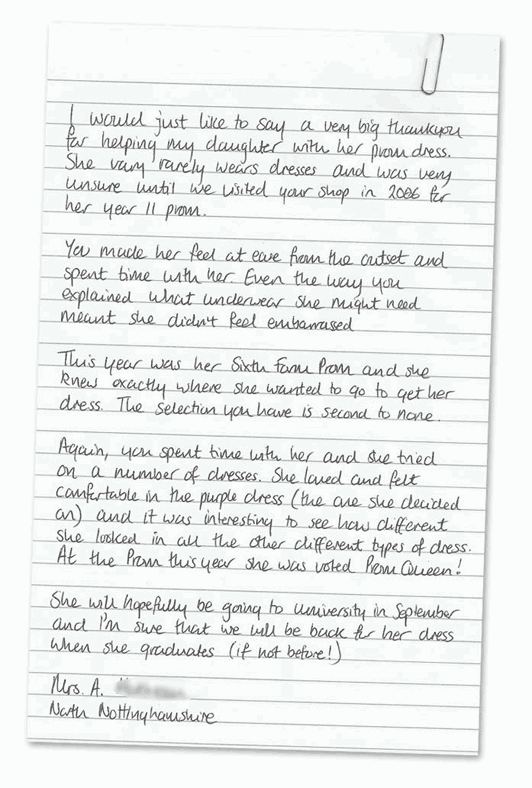 I would just like to say a very big thankyou
for helping my daughter with her prom dress.
She vary rarely wears dresses and was very
unsure until we visited your shop in 2006 for
her year 11 prom.
You made her feel at ease from the outset and
spent time with her. Even the way you
explained what underwear she might need
meant she didn't feel embarrased
This year was her Sixth Form Prom and she
knew exactly where she wanted to go to get her
dress. The selection you have is second to none.
Again, you spent time with her and she tried
on a number of dresses. She loved and felt
comfortable in the purple dress (the one she decided
on) and it was interesting to see how different
she looked in all the other different types of dress.
At the Prom this year she was voted Prom Queen!
She will hopefully be going to university in September
and I'm sure that we will be back for her dress
when she graduates (if not before!)
Mrs. A.
North Nottinghamshire